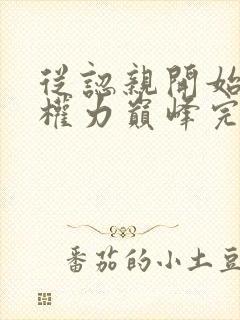 從認親開始
權力巔峰完
番茄的小土豆